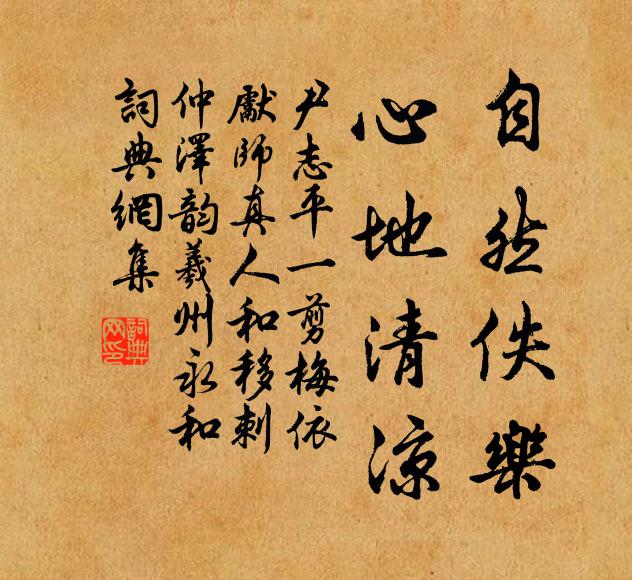 自然佚樂
心地清涼
尹志平一剪梅依
獻師真人和移剌
仲澤韵義州永和
詞典網集
詞典網印